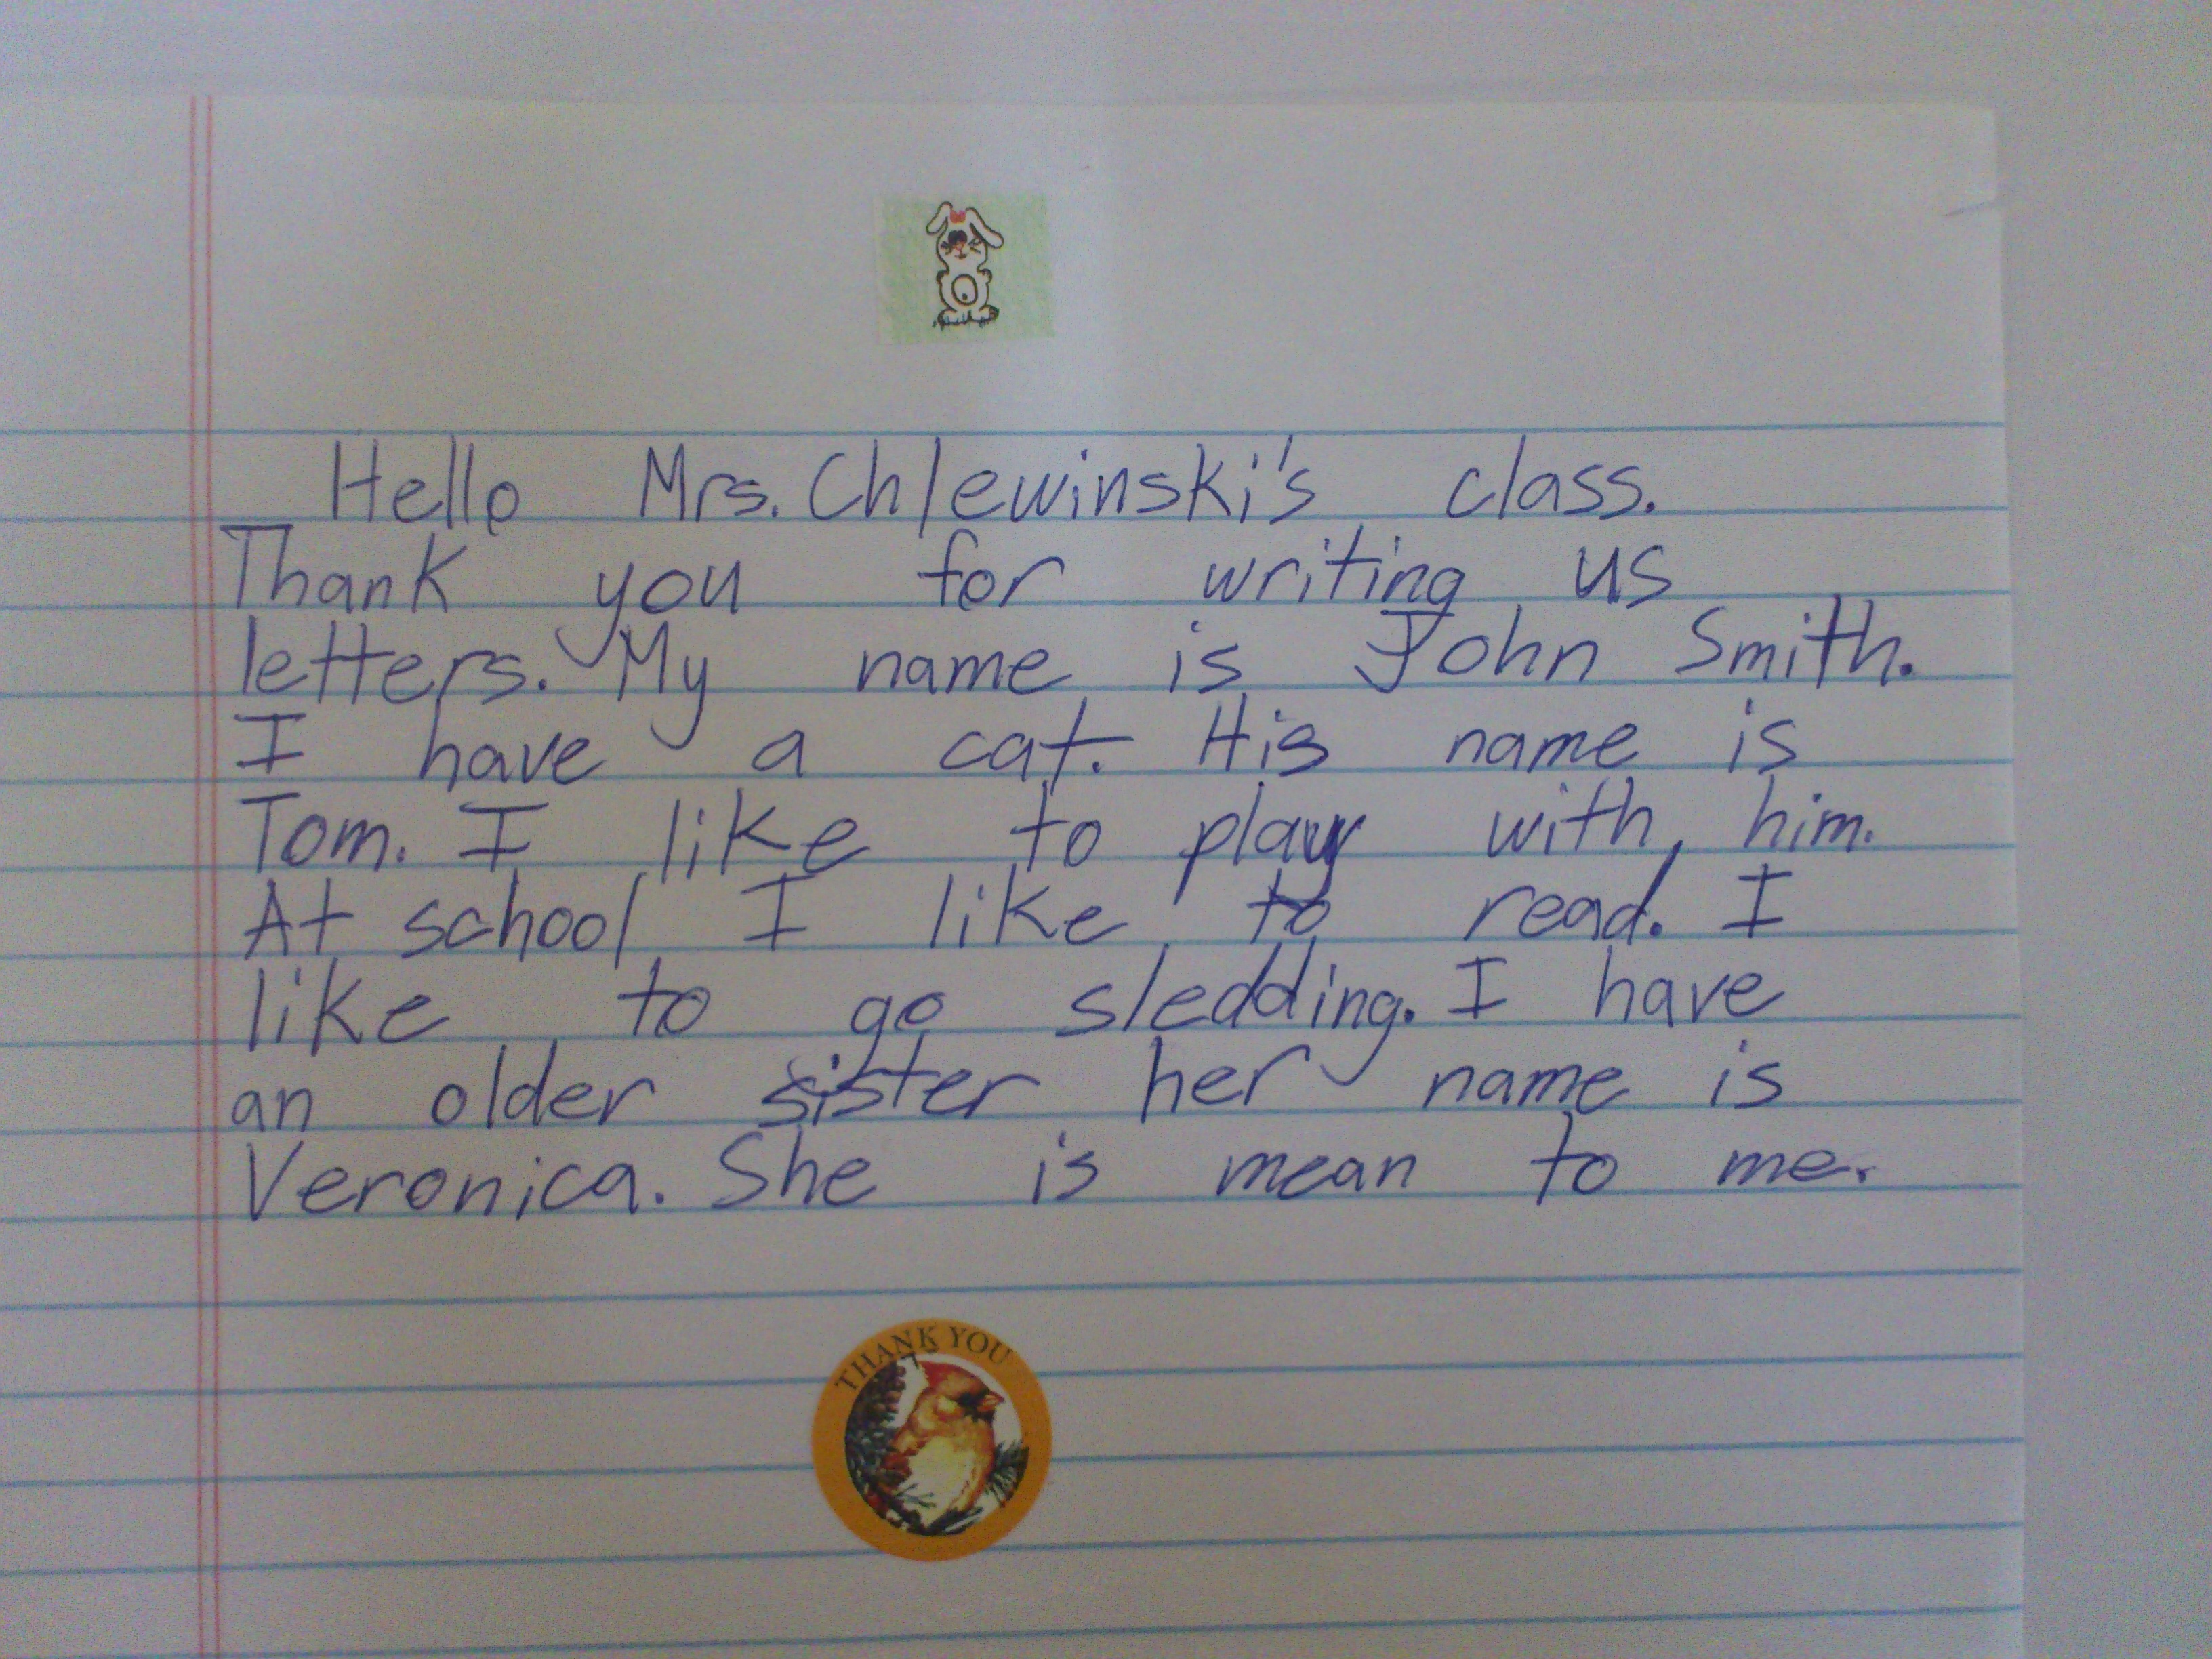 Hello Mrs. Chlewinski's class.
Thank you for writing us
letters. My name is John Smith.
I have a cat. His name is
Tom. I like to play with him.
At school I like to read. I
like to go sledding. I have
an older sister her name is
Veronica. She is mean to me.
THANK YOU